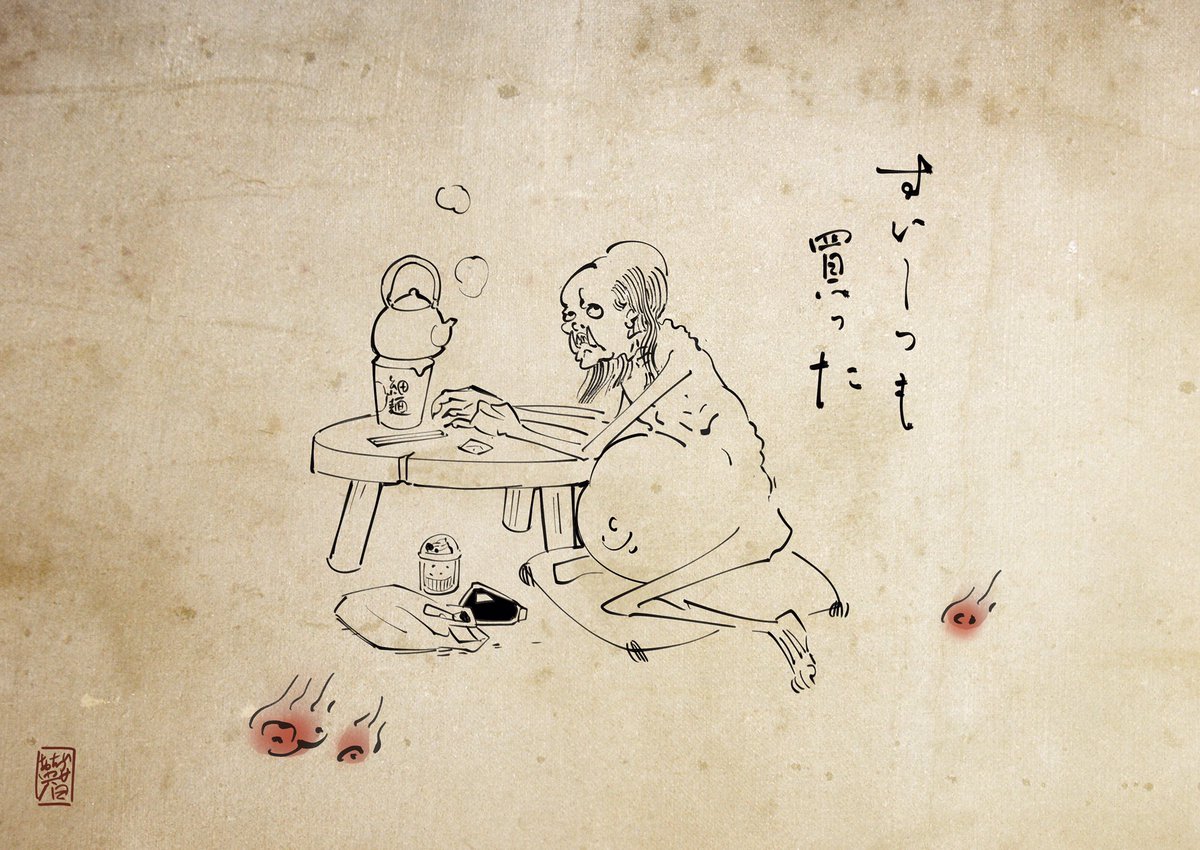 すいーつも
買った
細麺